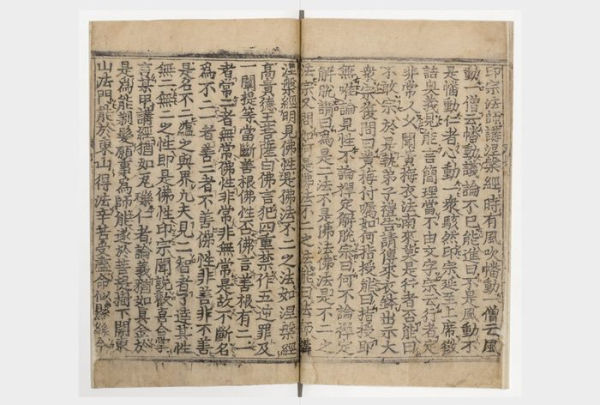 印宗法師講涅槃經時有風吹幡動一僧云風
動一僧云幡動議論不已能進曰不是風動不
是幡動仁者心動一衆駭然印宗延至上席徵
詰奥義見能言簡理當不由文字宗云行者定
非常人久聞黃梅衣法南來莫是行者否能曰
不敢宗於是執弟子禮告請傳來衣鉢出示大
衆宗復問曰黃梅付囑如何指授能曰指授即
無唯論見性不論禪定解脫宗曰何不論禪定
解脫謂曰爲是二法不是佛法佛法是不二之
法宗又問如何是佛法不二之法能曰法師講
涅槃經明見佛性是佛法不二之法如涅槃經
高貴德王菩薩白佛言犯四重禁作五逆罪及
一闡提等當斷善根佛性否佛言善根有二一
者常二者無常佛性非常非無常是故不斷名
爲不二一者善二者不善佛性非善非不善
是名不二蘊之與界凡夫見二智者了達其性
無二無二之性即是佛性印宗聞說歡喜合掌
言某甲講經猶如瓦礫仁者論義猶如眞金於
是爲能剃髮願事爲師能遂於菩提樹下開東
山法門能於東山得法辛苦受盡命似懸絲今